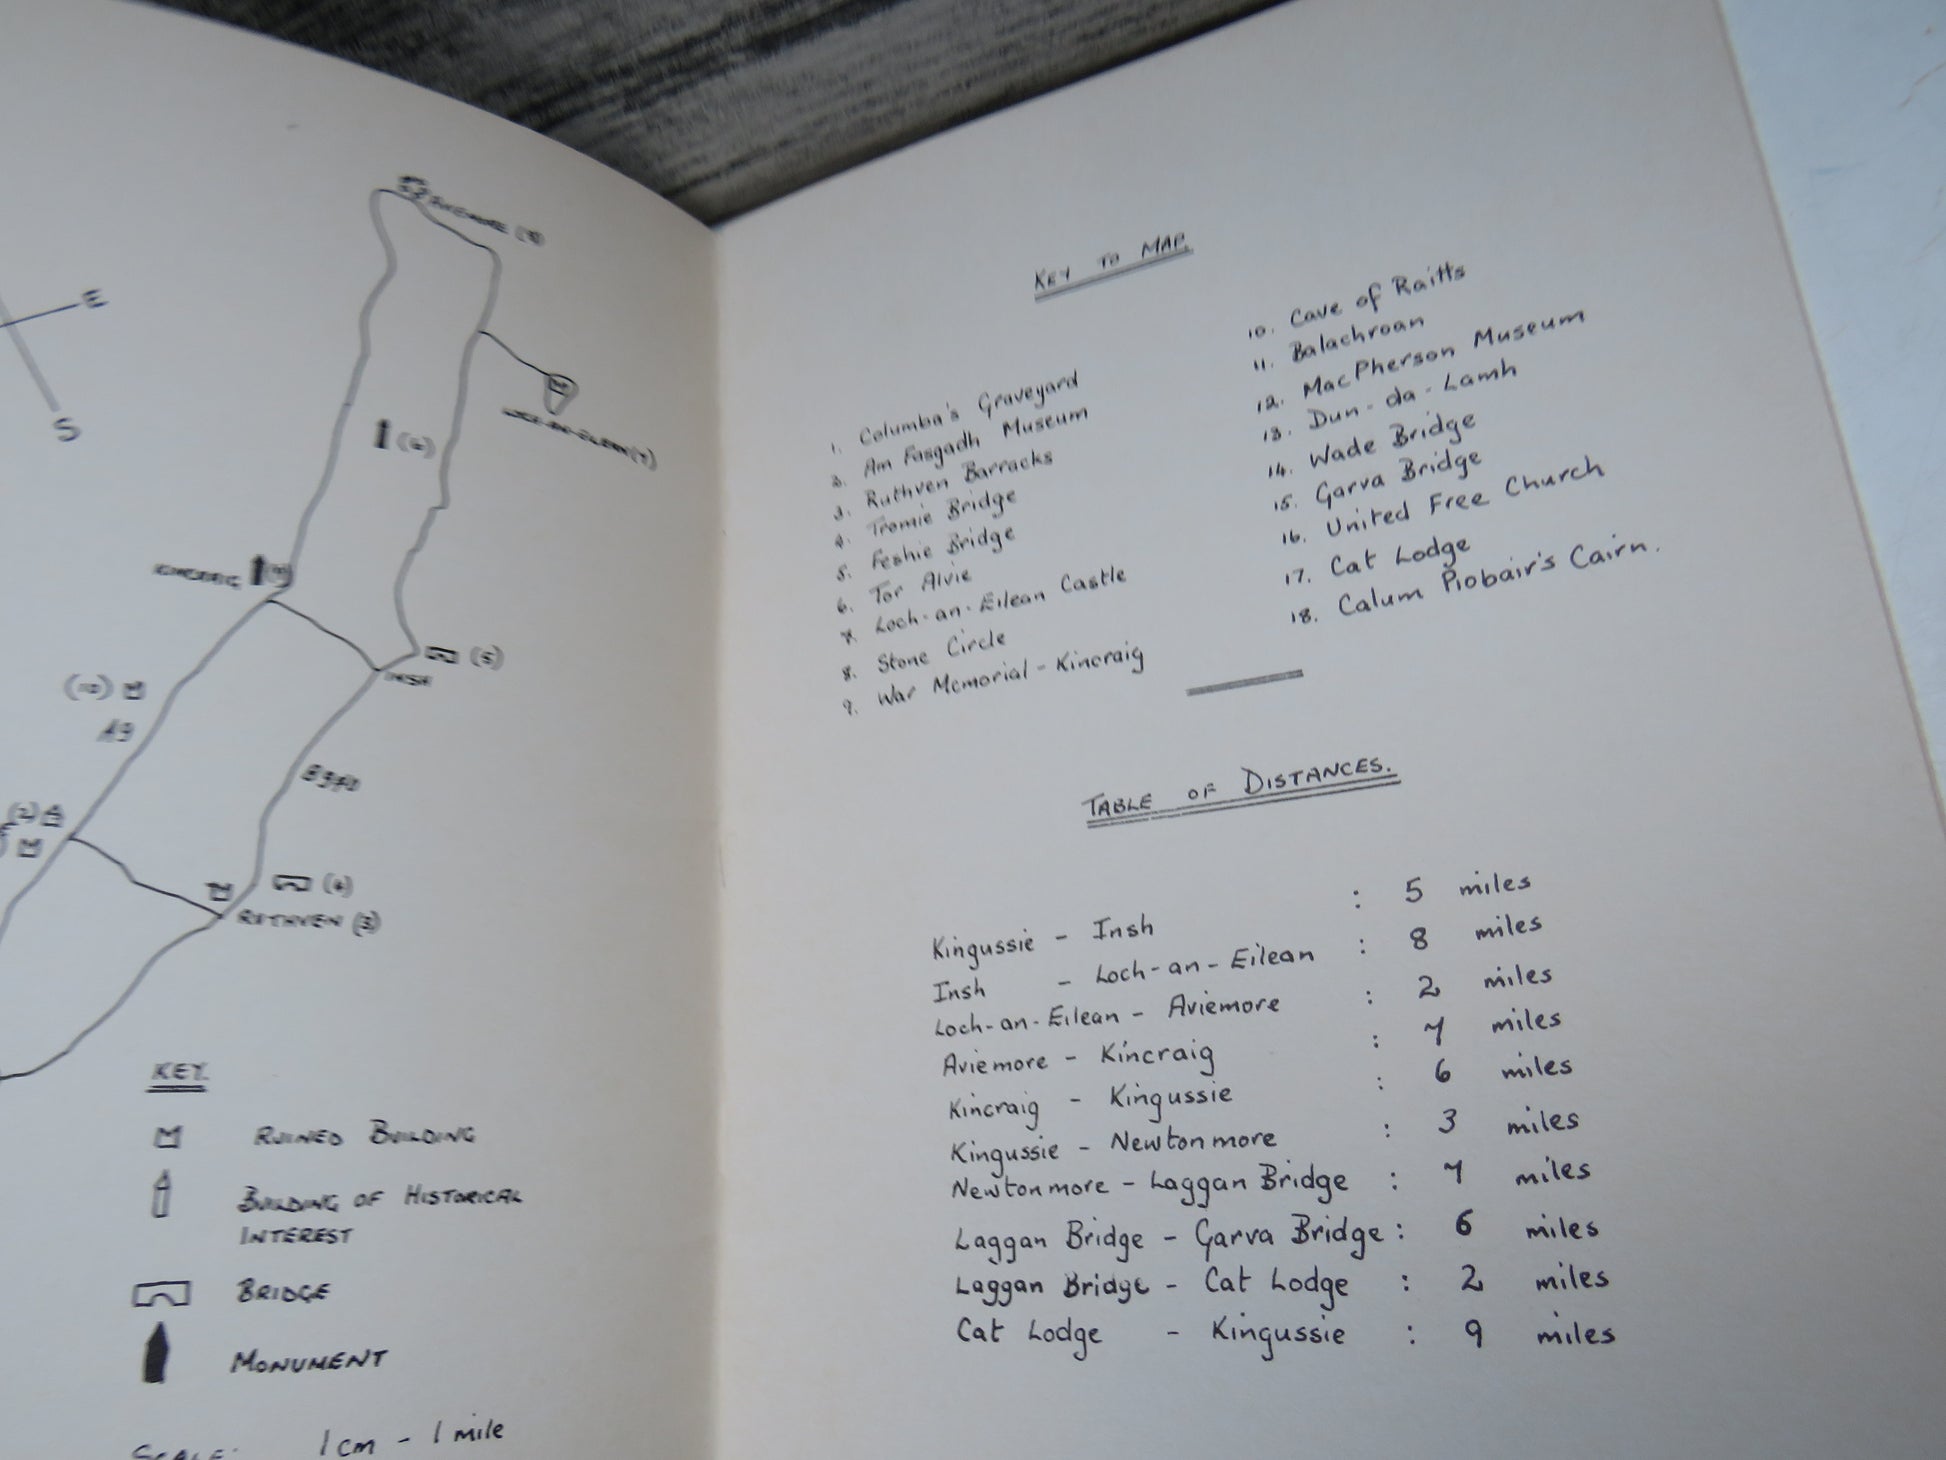 E
S
AVIEMORE
(6)
KINCRAIG
(5)
INSH
(10)
A9
B970
(2)
(4)
RUTHVEN (3)
KEY.
RUINED BUILDING
BUILDING OF HISTORICAL
INTEREST
BRIDGE
MONUMENT
SCALE: 1 cm - 1 mile
KEY TO MAP.
1. Columba's Graveyard
2. Am Fasgadh Museum
3. Ruthven Barracks
4. Tromie Bridge
5. Feshie Bridge
6. Tor Alvie
7. Loch-an-Eilean Castle
8. Stone Circle
9. War Memorial - Kincraig
10. Cave of Raitts
11. Balachroan
12. MacPherson Museum
13. Dun-da-Lamh
14. Wade Bridge
15. Garva Bridge
16. United Free Church
17. Cat Lodge
18. Calum Piobair's Cairn.
TABLE OF DISTANCES.
Kingussie - Insh : 5 miles
Insh - Loch-an-Eilean : 8 miles
Loch-an-Eilean - Aviemore : 2 miles
Aviemore - Kincraig : 7 miles
Kincraig - Kingussie : 6 miles
Kingussie - Newtonmore : 3 miles
Newtonmore - Laggan Bridge : 7 miles
Laggan Bridge - Garva Bridge : 6 miles
Laggan Bridge - Cat Lodge : 2 miles
Cat Lodge - Kingussie : 9 miles